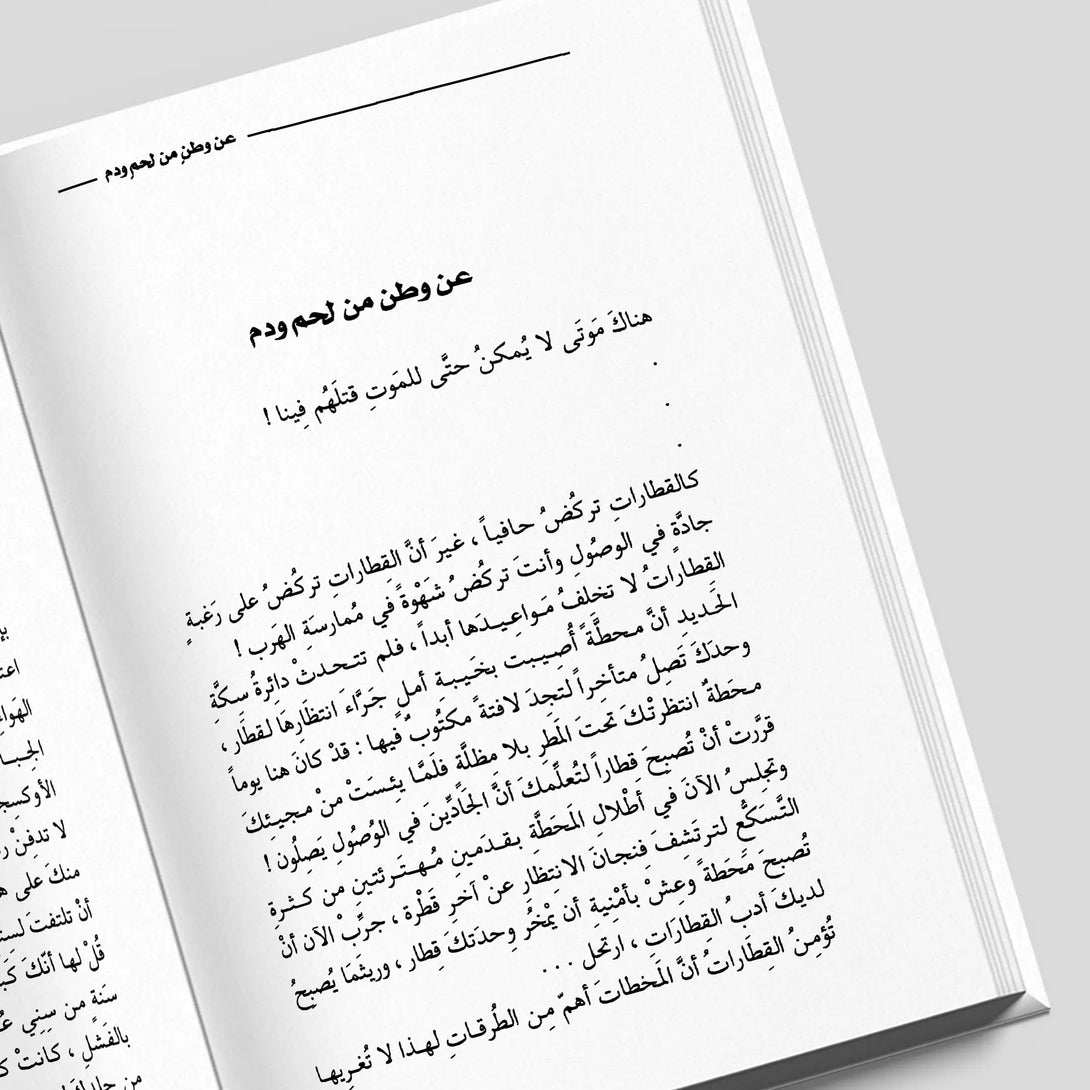 عن وطنٍ من لحمٍ ودم
عن وطن من لحم ودم
هناكَ مَوتَى لا يُمكنُ حتَّى للمَوتِ قتلَهُم فِينا !
.
.
.
كالقطاراتِ تركُضُ حافياً ، غيرَ أنَّ القِطاراتِ تركُضُ على رَغبةٍ
جادَّةٍ في الوصُولِ وأنتَ تركُضُ شَهْوةً في مُمارسَةِ الهَرب !
القطاراتُ لا تخلفُ مَواعِيدَها أبداً ، فلم تتحدثْ دائِرةُ سكَّةِ
الحَديدِ أنَّ محطَّةً أُصِيبت بخَيبةِ أملٍ جَرَّاءَ انتظَارِهَا لقطَارٍ ،
وحدَكَ تَصِلُ متأخِراً لتجِدَ لافتةً مكتُوبٌ فيها : قدْ كانَ هنا يوماً
محَطةٌ انتظرتْكَ تحتَ المَطرِ بلا مظلَّةٍ فلَمَّا يئِسَتْ منْ مجيئِكَ
قررَّتْ أنْ تُصبِحَ قِطاراً لتُعلِّمكَ أنَّ الجَادِّينَ في الوُصُولِ يَصِلُون !
وتجلِسُ الآنَ في أطْلالِ المَحَطَّةِ بقدَمينِ مُهتَرئتينِ من كثرةِ
التَّسَكُّع لترتَشفَ فِنجانَ الانتِظارِ عنْ آخرِ قَطْرة ، جرِّبْ الآن أنْ
تُصبحَ مَحَطةً وعِشْ بأمْنِيةِ أن يمْخُرُ وِحدَتكَ قِطار ، وريثَمَا يُصبحُ
لديكَ أدبُ القِطارَاتِ ، ارتحل ...
تُؤمِنُ القِطَاراتُ أنَّ المَحَطاتَ أهمّ مِن الطُرقاتِ لهذا لا تُغرِيها
الهَواءِ
الأوكسج
لا تدفِنْ
منكَ على
أنْ تلتفت
قُلْ لها أنّكَ
سَنةٍ من سِنِي
بالفَشلِ ، كانتْ